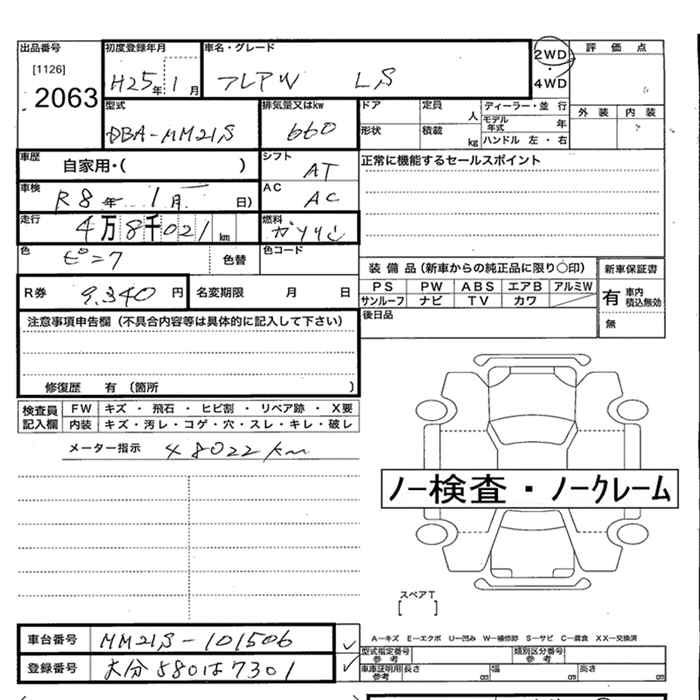 出品番号
[1126]
2063
初度登録年月
H25年 1月
車名・グレード
フレアW LS
2WD
・
4WD
評価点
外装 内装
型式
DBA-MM21S
排気量又はkw
660
ドア
定員 人
ディーラー・並行
モデル年式 年
形状
積載 kg
ハンドル 左・右
車歴
自家用・( )
シフト
AT
正常に機能するセールスポイント
車検
R8年 1月 日)
AC
AC
走行
4万8千021km
燃料
ガソリン
色
ピンク
色替
色コード
R券
9,340円
名変期限 月 日
装備品(新車からの純正品に限り○印)
PS PW ABS エアB アルミW
サンルーフ ナビ TV カワ
新車保証書
有 車内積込無効
無
後日品
注意事項申告欄(不具合内容等は具体的に記入して下さい)
修復歴 有(箇所 )
検査員記入欄
FW キズ・飛石・ヒビ割・リペア跡・X要
内装 キズ・汚レ・コゲ・穴・スレ・キレ・破レ
メーター指示 48022km
ノー検査・ノークレーム
スペアT
[ ]
A-キズ E-エクボ U-凹み W-補修跡 S-サビ C-腐食 XX-交換済
車台番号 MM21S-101506
登録番号 大分580は7301
型式指定番号 参考
類別区分番号 参考
車庫証明用 参考
長さ cm 幅 cm 高さ cm